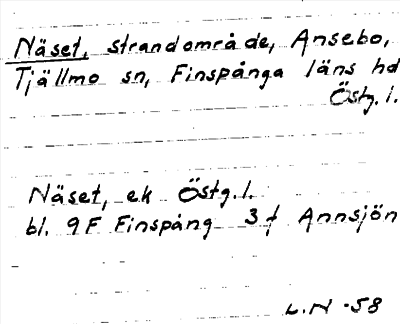 Näset, strandområde, Ansebo,
Tjällmo sn, Finspånga läns hd
Östg. l.
Näset, ek Östg. l.
bl. 9F Finspång 3f Annsjön
L.N -58